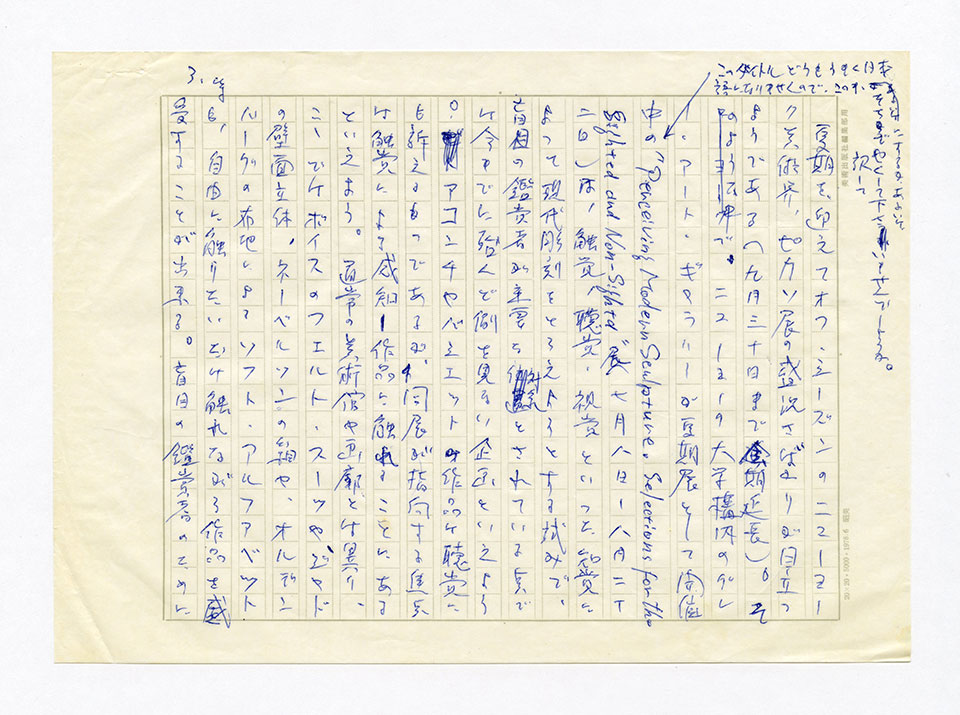 このタイトル どうもうまく日本
語になりませんので、このまま
にするか あるいは
そちらでやくして下さいませ
訳して
3.
夏期を迎えてオフ・シーズンのニューヨー
ク美術界、ピカソ展の盛況さばかりが目立つ
ようである(九月三十日まで会期延長)。そ
のような中で、ニューヨーク大学構内のグレ
ー・アート・ギャラリーが夏期展として開催
中の"Perceiving Modern Sculpture: Selections for the
Sighted and Non-Sighted"展 七月八日ー八月二十
二日)は、触覚、聴覚、視覚といった知覚に
よって現代彫刻をとらえようとする試みで、
盲目の鑑賞者が重要な とされている点で
は今までに殆んど例を見ない企画といえよう
。アコンチやベミエットの作品は聴覚に
も訴えるものであるが、同展が指向する焦点
は触覚による感知ー作品に触れることにある
といえよう。通常の美術館や画廊とは異り、
ここではボイスのフェルト・スーツやジャッド
の壁面立体、ネーベルソンの箱や、オルデン
バーグの布地によるソフト・アルファベット
も、自由に触りたいだけ触れながら作品を感
受することが出来る。盲目の鑑賞者のために
美術出版社編集部用
20×20・5000・1979・6 昭光